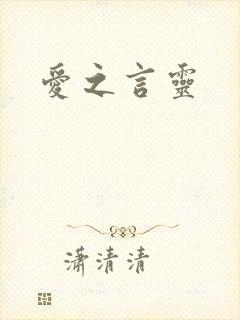 愛之言靈
潇清清